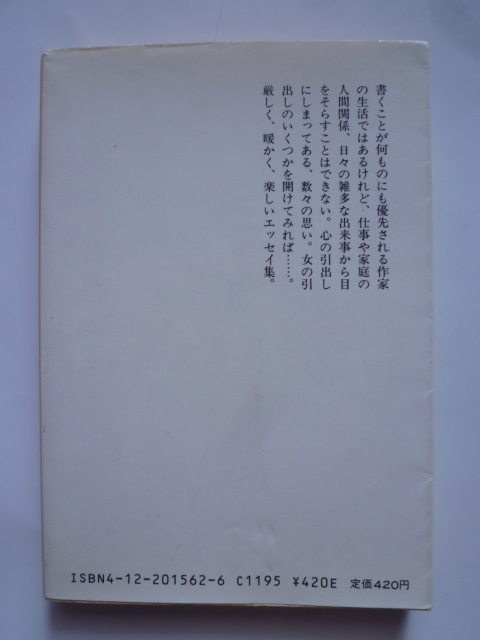 書くことが何ものにも優先される作家
の生活ではあるけれど、仕事や家庭の
人間関係、日々の雑多な出来事から目
をそらすことはできない。心の引出し
にしまってある、数々の思い。女の引
出しのいくつかを開けてみれば……。
厳しく、暖かく、楽しいエッセイ集。
ISBN4-12-201562-6 C1195 ¥420E 定価420円